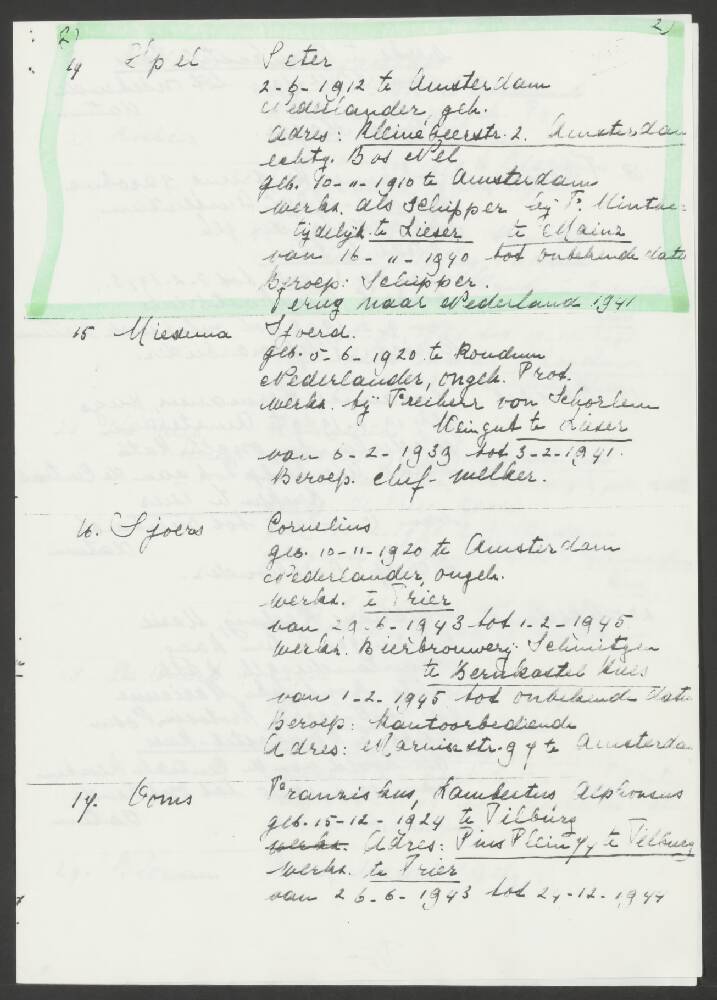 2) 2)
14 Epel Peter
2-6-1912 te Amsterdam
Nederlander, geh.
Adres: Kleine Geerstr. 2. Amsterdam
echtg. Bos Nel
geb. 10-11-1910 te Amsterdam
werkz. als Schipper bij P.
tijdelijk te Lieser te Mainz
van 16-11-1940 tot onbekende datum
Beroep: Schipper.
Terug naar Nederland 1941
15 Miedema Sjoerd.
geb. 5-6-1920 te Koudum
Nederlander, ongeh. Prot.
werkz. bij Freiherr von Schorlem
Weingut te Lieser
van 6-2-1939 tot 3-2-1941.
Beroep. chef-melker.
16. Sjoers Cornelius
geb. 10-11-1920 te Amsterdam
Nederlander, ongeh.
werkz. te Trier
van 29-6-1943 tot 1-2-1945
werkz. Bierbrouwerij Schmietgen
te Bernkastel Kues
van 1-2-1945 tot onbekende datum
Beroep: kantoorbediende
Adres: Marnixstr. 94 te Amsterdam
17. Ooms Franziskus, Lambertus Alphonsus
geb. 15-12-1924 te Tilburg
werkz. Adres: Pius Plein 74 te Tilburg
werkz. te Trier
van 26-6-1943 tot 24-12-1944